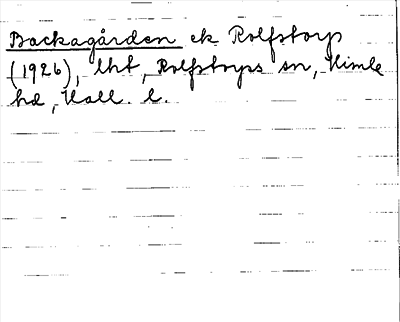 Backagården ek Rolfstorp
(1926), lht, Rolfstorps sn, Himle
hd, Hall. l.